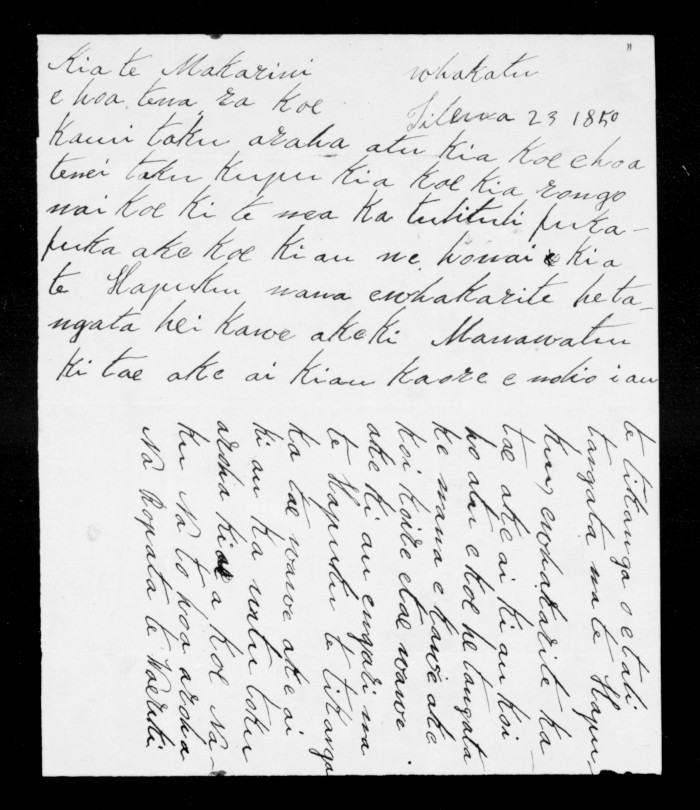 "
Kia te Makarini whakatu
e hoa tena ra koe Tilema 23 1850
Kanui taku aroha atu kia koe e hoa
tenei taku kupu kia koe kia rongo
mai koe ki te mea ka tuhituhi puka-
puka ake koe ki au me homai kia
te Hapuku mana ewhakarite he ta-
ngata hei kawe ake ki Manawatu
ki tae ake ai kiau kaore e mdio i au
te tikanga o etahi
tangata ma te Hapu-
ku, ewhakarite ka
tae ake ai ki au koi
ho atu e koe he tangata
ke mana e kawe ake
koi kore etae wawe
ake ki au engari ma
te Hapuku te tikanga
ka tae wawe ake ai
ki au ka nutu toku
aroha kia a koe Na-
ku Na to hoa aroha
Na Ropata te